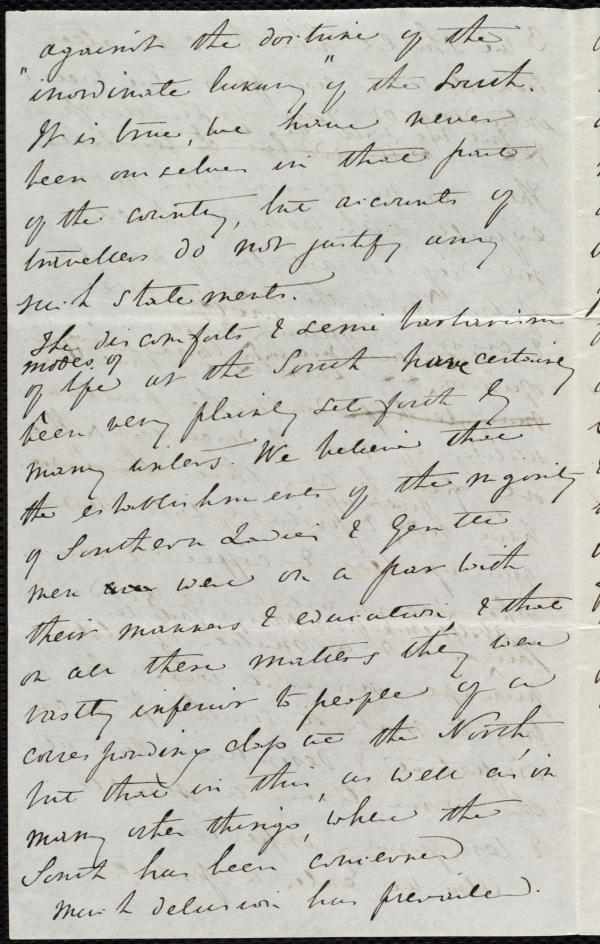 against the doctrine of the
"inordinate luxury" of the South.
It is true, we have never
been ourselves in that part
of the country, but accounts of
travellers do not justify any
such statements.
The discomforts & semi barbarism
modes of
of life at the South have certainly
been very plainly set forth by
many writers. We believe that
the establishments of the majority
of Southern Ladies & Gentle
men were on a par with
their manners & education, & that
on all these matters they were
vastly inferior to people of a
corresponding class at the North,
but that in this, as well as in
many other things, where the
South has been concerned
much delusion has prevailed.